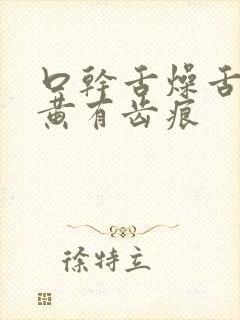 口幹舌燥舌
黄有齿痕
徐特立